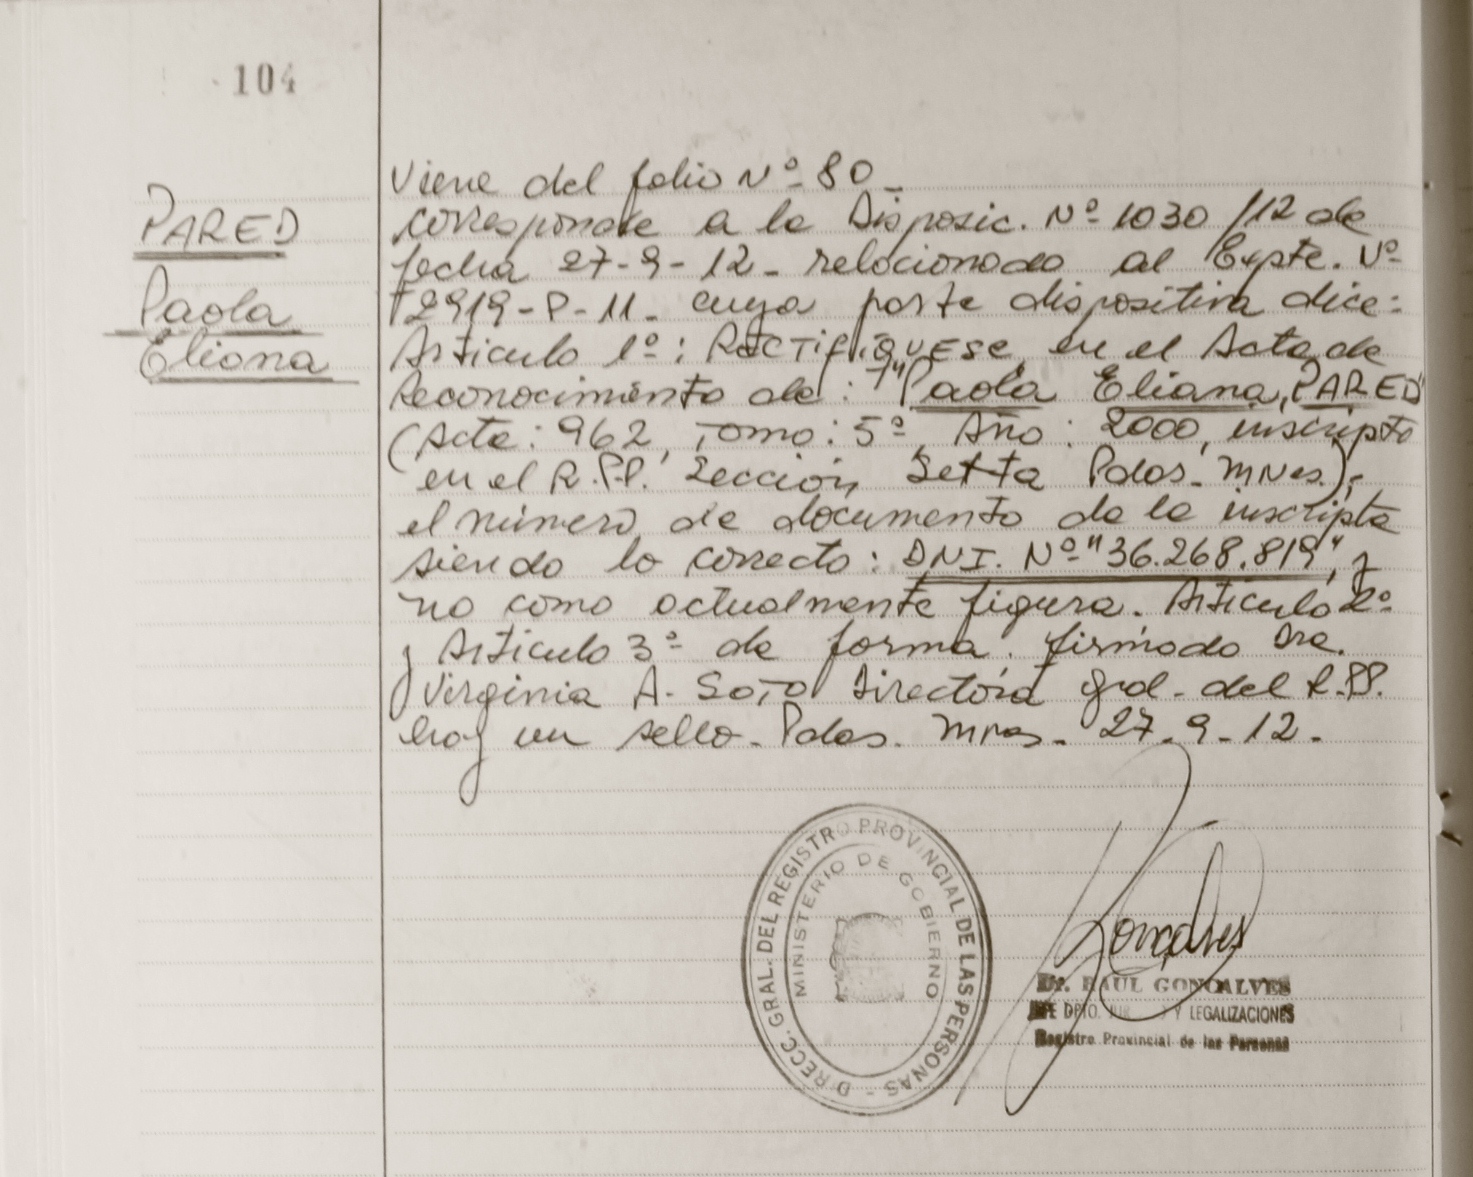 104
PARED
Paola
Eliana
Viene del folio Nº 80_
corresponde a la Disposic. Nº 1030/12 de
fecha 27-9-12_ relacionado al Expte. Nº
2919-P-11_ cuya parte dispositiva dice:
Artículo 1º: RECTIFIQUESE, en el Acta de
Reconocimiento de: "Paola Eliana, PARED"
(Acta: 962, Tomo: 5º, Año: 2000, inscripto
en el R.P.P. Sección Setta Pdas. Mnes.);
el número de documento de la inscripta
siendo lo correcto: DNI. Nº "36.268.819", y
no como actualmente figura. Artículo 2º
y Artículo 3º de forma. firmado Dra.
Virginia A. Soto Directora gral. del R.PP.
hay un sello_ Pdas. Mnes_ 27-9-12.
DIRECC. GRAL. DEL REGISTRO PROVINCIAL DE LAS PERSONAS -
MINISTERIO DE GOBIERNO
Goncalves
Dr. RAUL GONCALVES
JEFE DPTO. Y LEGALIZACIONES
Registro Provincial de las Personas